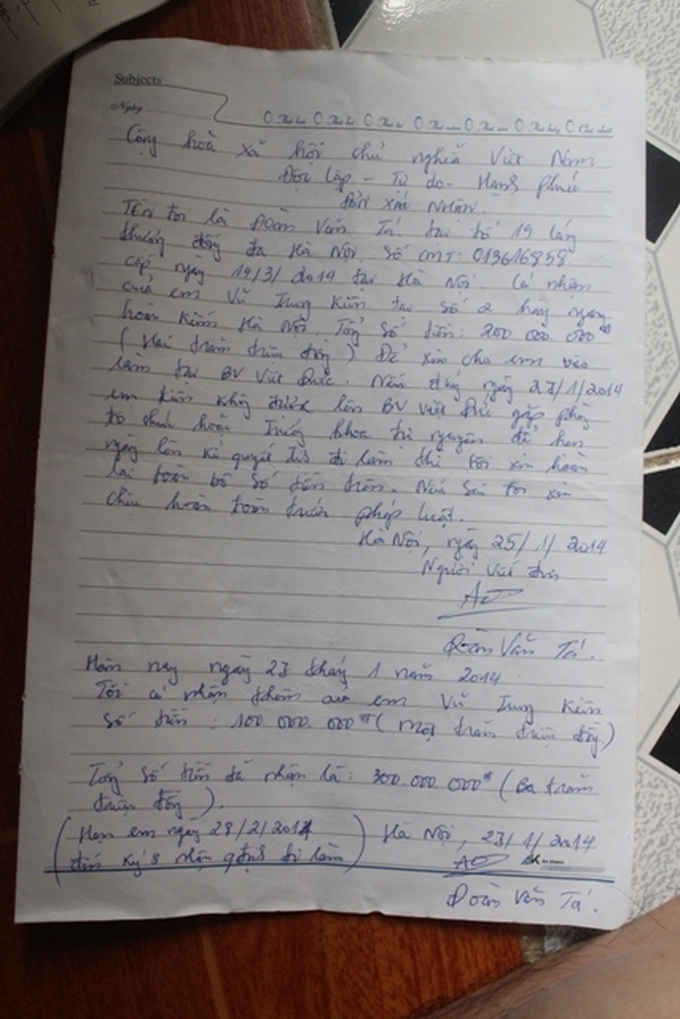 Subjects
Ngày
Thứ hai Thứ ba Thứ tư Thứ năm Thứ sáu Thứ bảy Chủ nhật
Cộng hoà xã hội chủ nghĩa Việt Nam
Độc lập - Tự do - Hạnh phúc
ĐƠN XÁC NHẬN
Tên tôi là Đoàn Văn Tá. tại tổ 19 láng
thượng đống đa Hà Nội. Số CMT: 013616858
cấp ngày 14/3/2019 tại Hà Nội. Có nhận
của em Vũ Trung Kiên tại số 2
hoàn kiếm Hà Nội. Tổng số tiền: 200.000.000đ
(Hai trăm triệu đồng) Để xin cho em vào
làm tại BV Việt Đức. Nếu đúng ngày 27/1/2014
em Kiên không được lên BV Việt Đức gặp phòng
tổ chức hoặc Trưởng khoa để hẹn
ngày lên ký quyết định đi làm thì tôi xin hoàn
lại toàn bộ số tiền trên. Nếu sai tôi xin
chịu hoàn toàn trước pháp luật.
Hà Nội, ngày 25/1/2014
Người viết đơn
Đoàn Văn Tá.
Hôm nay ngày 27 tháng 1 năm 2014.
Tôi có nhận thêm của em Vũ Trung Kiên
số tiền: 100.000.000đ (Một trăm triệu đồng.)
Tổng số tiền đã nhận là: 300.000.000đ (Ba trăm
triệu đồng).
(Hẹn em ngày 28/2/2014 Hà Nội, 27/1/2014
đến ký nhận định đi làm)
Đoàn Văn Tá.